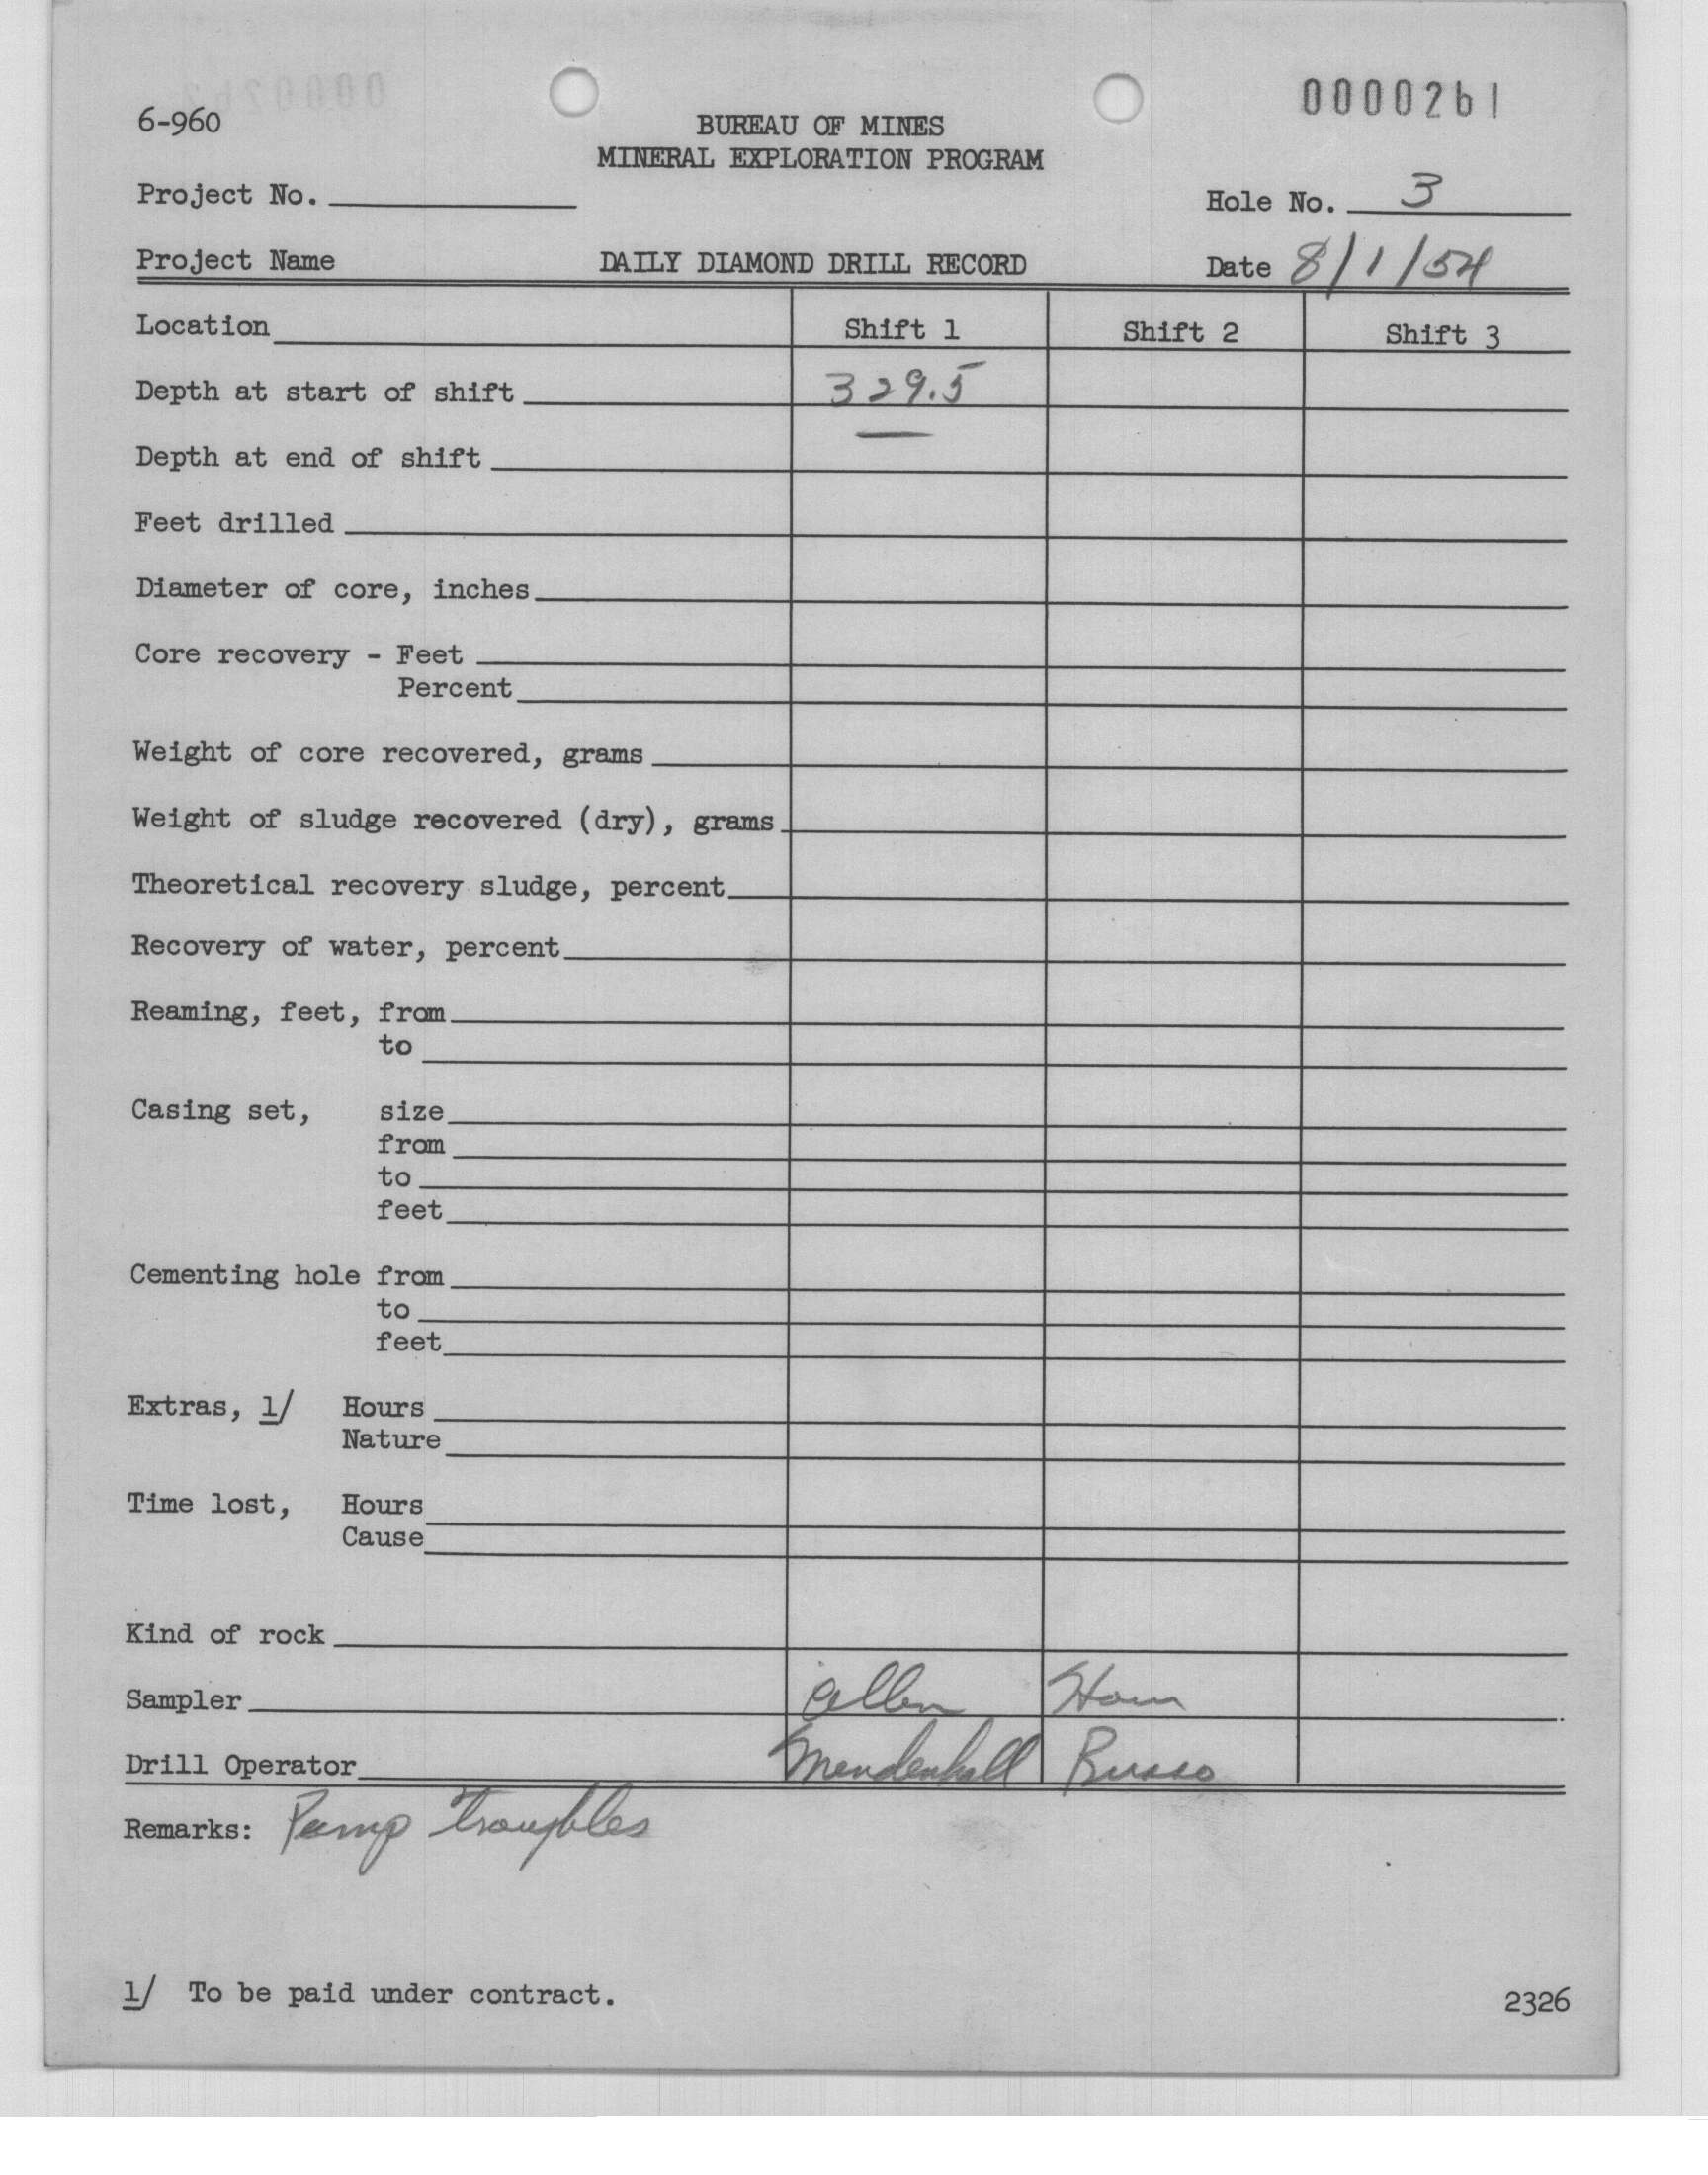 0000261
6-960
BUREAU OF MINES
MINERAL EXPLORATION PROGRAM
Project No.
Hole No. 3
Project Name DAILY DIAMOND DRILL RECORD Date 8/1/54
Location Shift 1 Shift 2 Shift 3
Depth at start of shift 329.5
Depth at end of shift
Feet drilled
Diameter of core, inches
Core recovery - Feet
Percent
Weight of core recovered, grams
Weight of sludge recovered (dry), grams
Theoretical recovery sludge, percent
Recovery of water, percent
Reaming, feet, from
to
Casing set, size
from
to
feet
Cementing hole from
to
feet
Extras, 1/ Hours
Nature
Time lost, Hours
Cause
Kind of rock
Sampler Allen
Drill Operator Mendenhall Russo
Remarks: Pump Troubles
1/ To be paid under contract.
2326